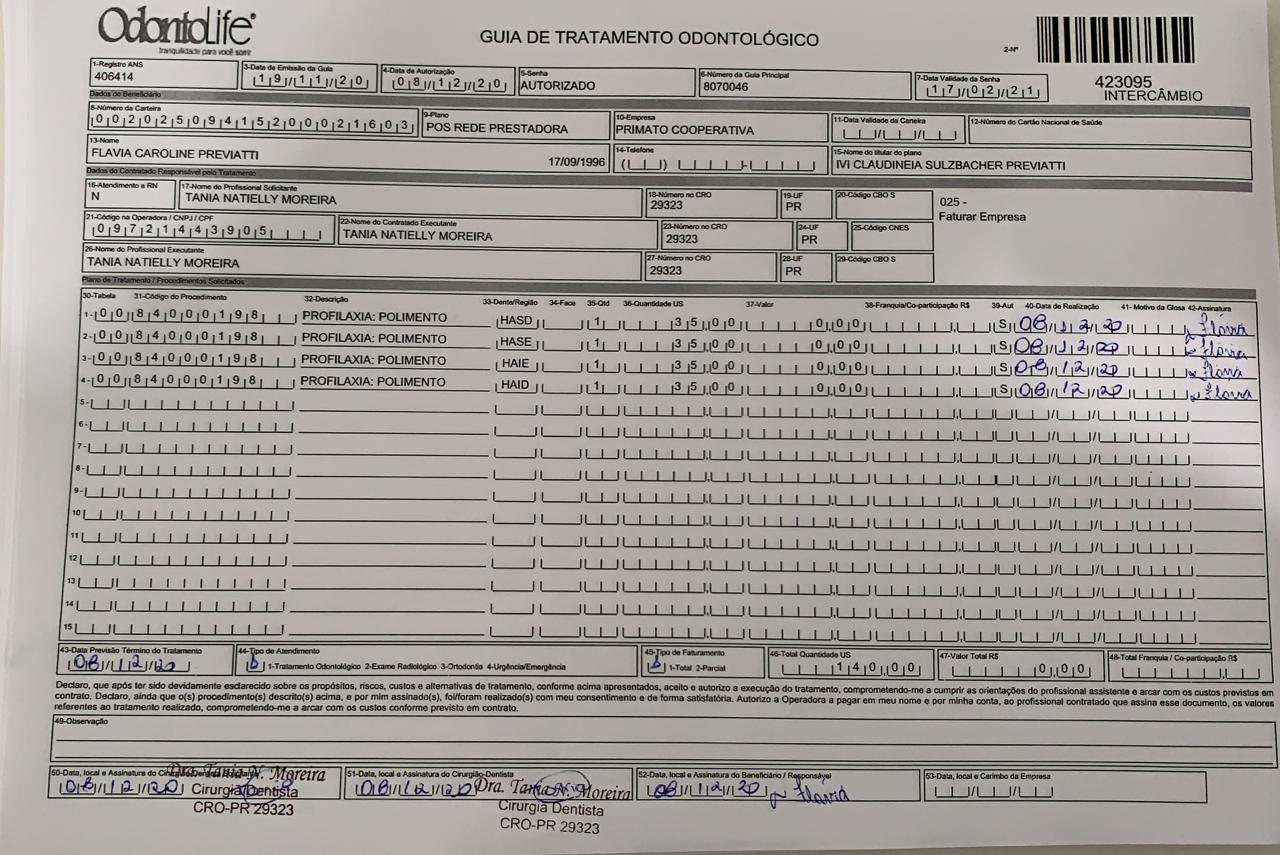 OdontoLife
tranquilidade para você sorrir
GUIA DE TRATAMENTO ODONTOLÓGICO
2-Nº
423095
INTERCÂMBIO
1-Registro ANS
406414
3-Data de Emissão da Guia
19/11/20
4-Data de Autorização
08/12/20
5-Senha
AUTORIZADO
6-Número da Guia Principal
8070046
7-Data Validade da Senha
17/02/21
Dados do Beneficiário
8-Número da Carteira
00202509415200021603
9-Plano
POS REDE PRESTADORA
10-Empresa
PRIMATO COOPERATIVA
11-Data Validade da Carteira
12-Número do Cartão Nacional de Saúde
13-Nome
FLAVIA CAROLINE PREVIATTI 17/09/1996
14-Telefone
15-Nome do titular do plano
IVI CLAUDINEIA SULZBACHER PREVIATTI
Dados do Contratado Responsável pelo Tratamento
16-Atendimento a RN
N
17-Nome do Profissional Solicitante
TANIA NATIELLY MOREIRA
18-Número no CRO
29323
19-UF
PR
20-Código CBO S
025 -
Faturar Empresa
21-Código na Operadora / CNPJ / CPF
09721443905
22-Nome do Contratado Executante
TANIA NATIELLY MOREIRA
23-Número no CRO
29323
24-UF
PR
25-Código CNES
26-Nome do Profissional Executante
TANIA NATIELLY MOREIRA
27-Número no CRO
29323
28-UF
PR
29-Código CBO S
Plano de Tratamento / Procedimentos Solicitados
30-Tabela 31-Código do Procedimento 32-Descrição 33-Dente/Região 34-Face 35-Qtd 36-Quantidade US 37-Valor 38-Franquia/Co-participação R$ 39-Aut 40-Data de Realização 41- Motivo da Glosa 42-Assinatura
1- 00 84000198 PROFILAXIA: POLIMENTO HASD 1 35,00 0,00 S 08/12/20 Flavia
2- 00 84000198 PROFILAXIA: POLIMENTO HASE 1 35,00 0,00 S 08/12/20 Flavia
3- 00 84000198 PROFILAXIA: POLIMENTO HAIE 1 35,00 0,00 S 08/12/20 Flavia
4- 00 84000198 PROFILAXIA: POLIMENTO HAID 1 35,00 0,00 S 08/12/20 Flavia
5-
6-
7-
8-
9-
10
11
12
13
14
15
43-Data Previsão Término do Tratamento
08/12/20
44-Tipo de Atendimento
1-Tratamento Odontológico 2-Exame Radiológico 3-Ortodontia 4-Urgência/Emergência
45-Tipo de Faturamento
1-Total 2-Parcial
46-Total Quantidade US
140,00
47-Valor Total R$
0,00
48-Total Franquia / Co-participação R$
Declaro, que após ter sido devidamente esclarecido sobre os propósitos, riscos, custos e alternativas de tratamento, conforme acima apresentados, aceito e autorizo a execução do tratamento, comprometendo-me a cumprir as orientações do profissional assistente e arcar com os custos previstos em
contrato. Declaro, ainda que o(s) procedimento(s) descrito(s) acima, e por mim assinado(s), foi/foram realizado(s) com meu consentimento e de forma satisfatória. Autorizo a Operadora a pagar em meu nome e por minha conta, ao profissional contratado que assina esse documento, os valores
referentes ao tratamento realizado, comprometendo-me a arcar com os custos conforme previsto em contrato.
49-Observação
50-Data, local e Assinatura do
08/12/20
Dra. Tania N. Moreira
Cirurgiã Dentista
CRO-PR 29323
51-Data, local e Assinatura do Cirurgião-Dentista
08/12/20
Dra. Tania N. Moreira
Cirurgiã Dentista
CRO-PR 29323
52-Data, local e Assinatura do Beneficiário / Responsável
08/12/20 Flavia
53-Data, local e Carimbo da Empresa